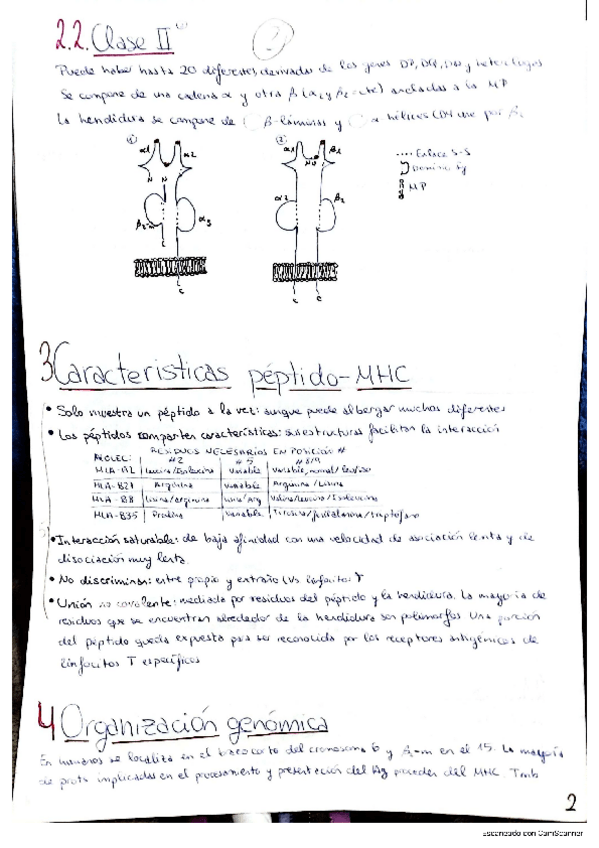 2.2. Clase II
2
Puede haber hasta 20 diferentes derivados de los genes DP, DQ, y heterólogos
Se compone de una cadena α y otra β (α2 y β2 = cte) ancladas a la MP
La hendidura se compone de β-láminas y α hélices CD4 une por β2
① ②
α1 α2 α1 β1
N N N N
β2-m α3 α2 β2
C C C
.... Enlace S-S
Dominio Ig
MP
3 Características péptido-MHC
• Solo muestra un péptido a la vez: aunque puede albergar muchos diferentes
• Los péptidos comparten características: sus estructuras facilitan la interacción
RESIDUOS NECESARIOS EN POSICIÓN #
MOLEC: #2 #5 #8/9
HLA-A2 Leucina/Isoleucina Variable Variable, normal
HLA-B27 Arginina variable Arginina/Lisina
HLA-B8 Lisina/arginina Valina/Leucina/Isoleucina
HLA-B35 Prolina Variable Tirosina/fenilalanina/triptófano
• Interacción saturable: de baja afinidad con una velocidad de asociación lenta y de
disociación muy lenta
• No discriminan: entre propio y extraño (vs linfocitos T
• Unión no covalente: mediada por residuos del péptido y la hendidura. La mayoría de
residuos que se encuentran alrededor de la hendidura son polimorfos Una porción
del péptido queda expuesta para ser reconocida por los receptores antigénicos de
linfocitos T específicos
4 Organización genómica
En humanos se localiza en el brazo corto del cromosoma 6 y β2-m en el 15. La mayoría
de prots implicadas en el procesamiento y presentación del Ag proceden del MHC. Tmb
2
Escaneado con CamScanner